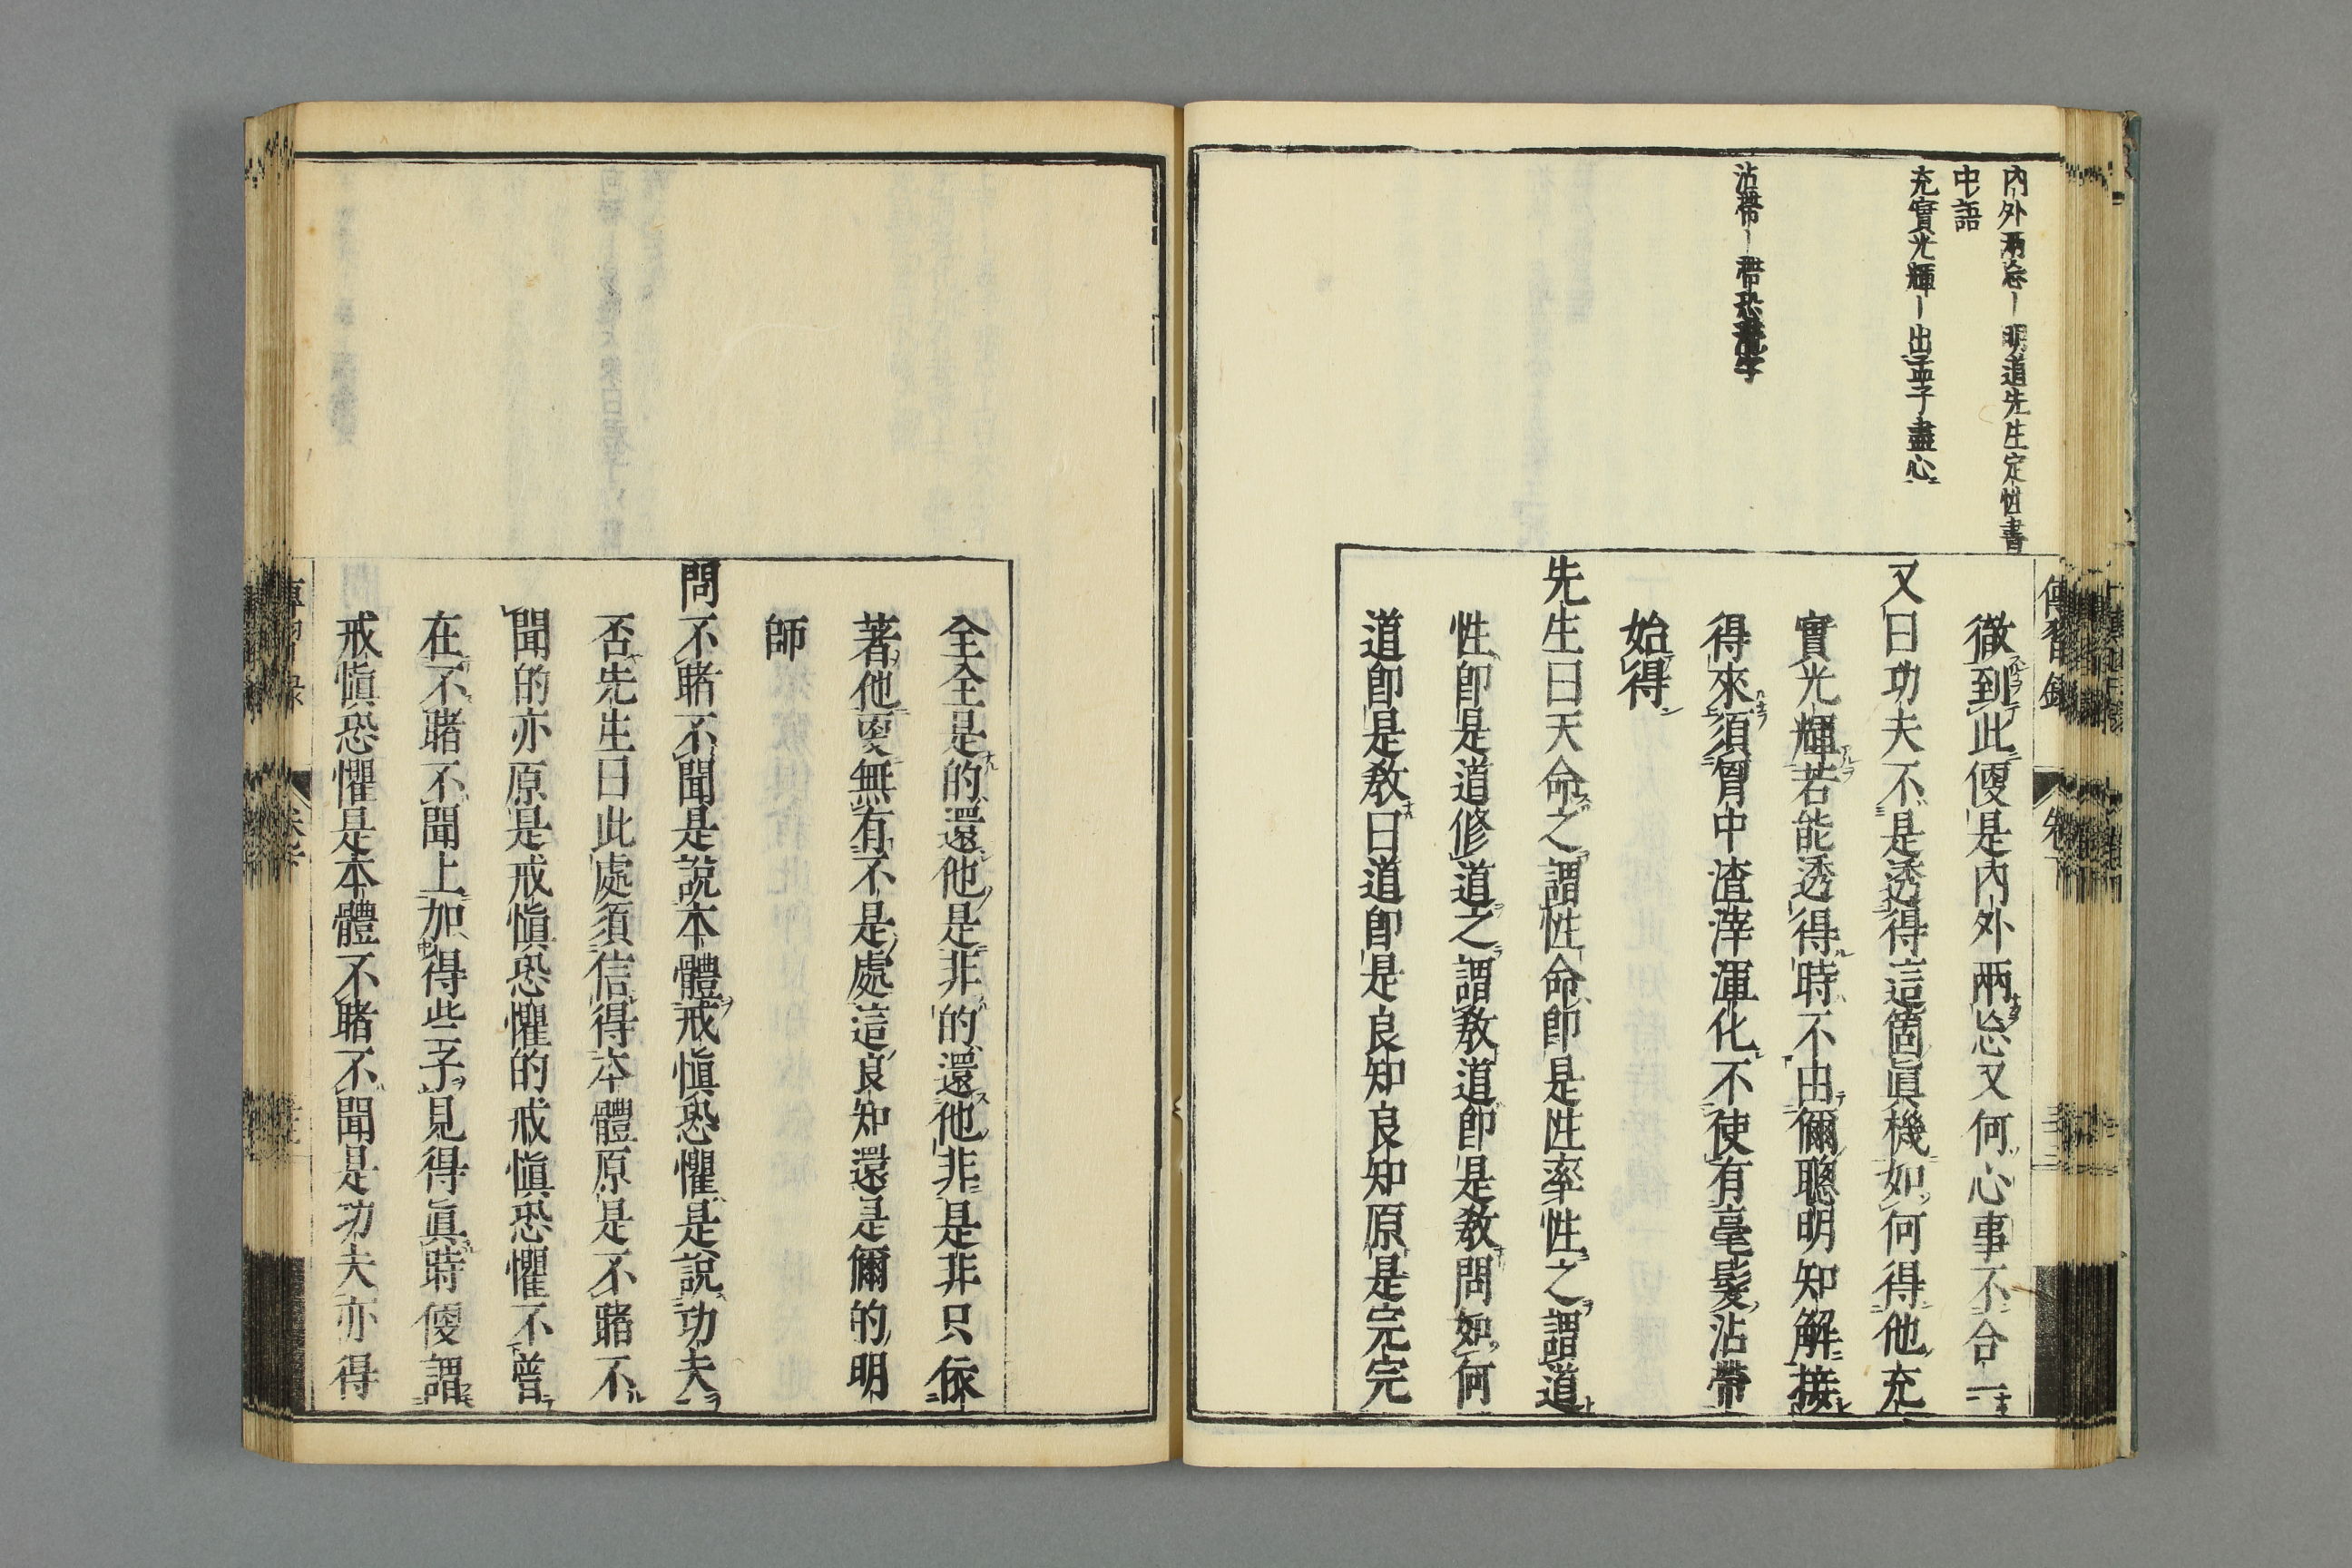 內外兩忘｜明道先生定性書
中語
充實光輝｜出孟子盡心
沾帶｜
傳習錄
卷下
徹到此便是內外兩忘又何心事不合一
又曰功夫不是透得這箇眞機如何得他充
實光輝若能透得時不由儞聰明知解接
得來須胷中渣滓渾化不使有毫髮沾帶
始得
先生曰天命之謂性命卽是性率性之謂道
性卽是道修道之謂敎道卽是敎問如何
道卽是敎曰道卽是良知良知原是完完
全全是的還他是非的還他非是非只依
著他更無有不是處這良知還是儞的明
師
問不睹不聞是說本體戒愼恐懼是說功夫
否先生曰此處須信得本體原是不睹不
聞的亦原是戒愼恐懼的戒愼恐懼不曾
在不睹不聞上加得些子見得眞時便謂
戒愼恐懼是本體不睹不聞是功夫亦得